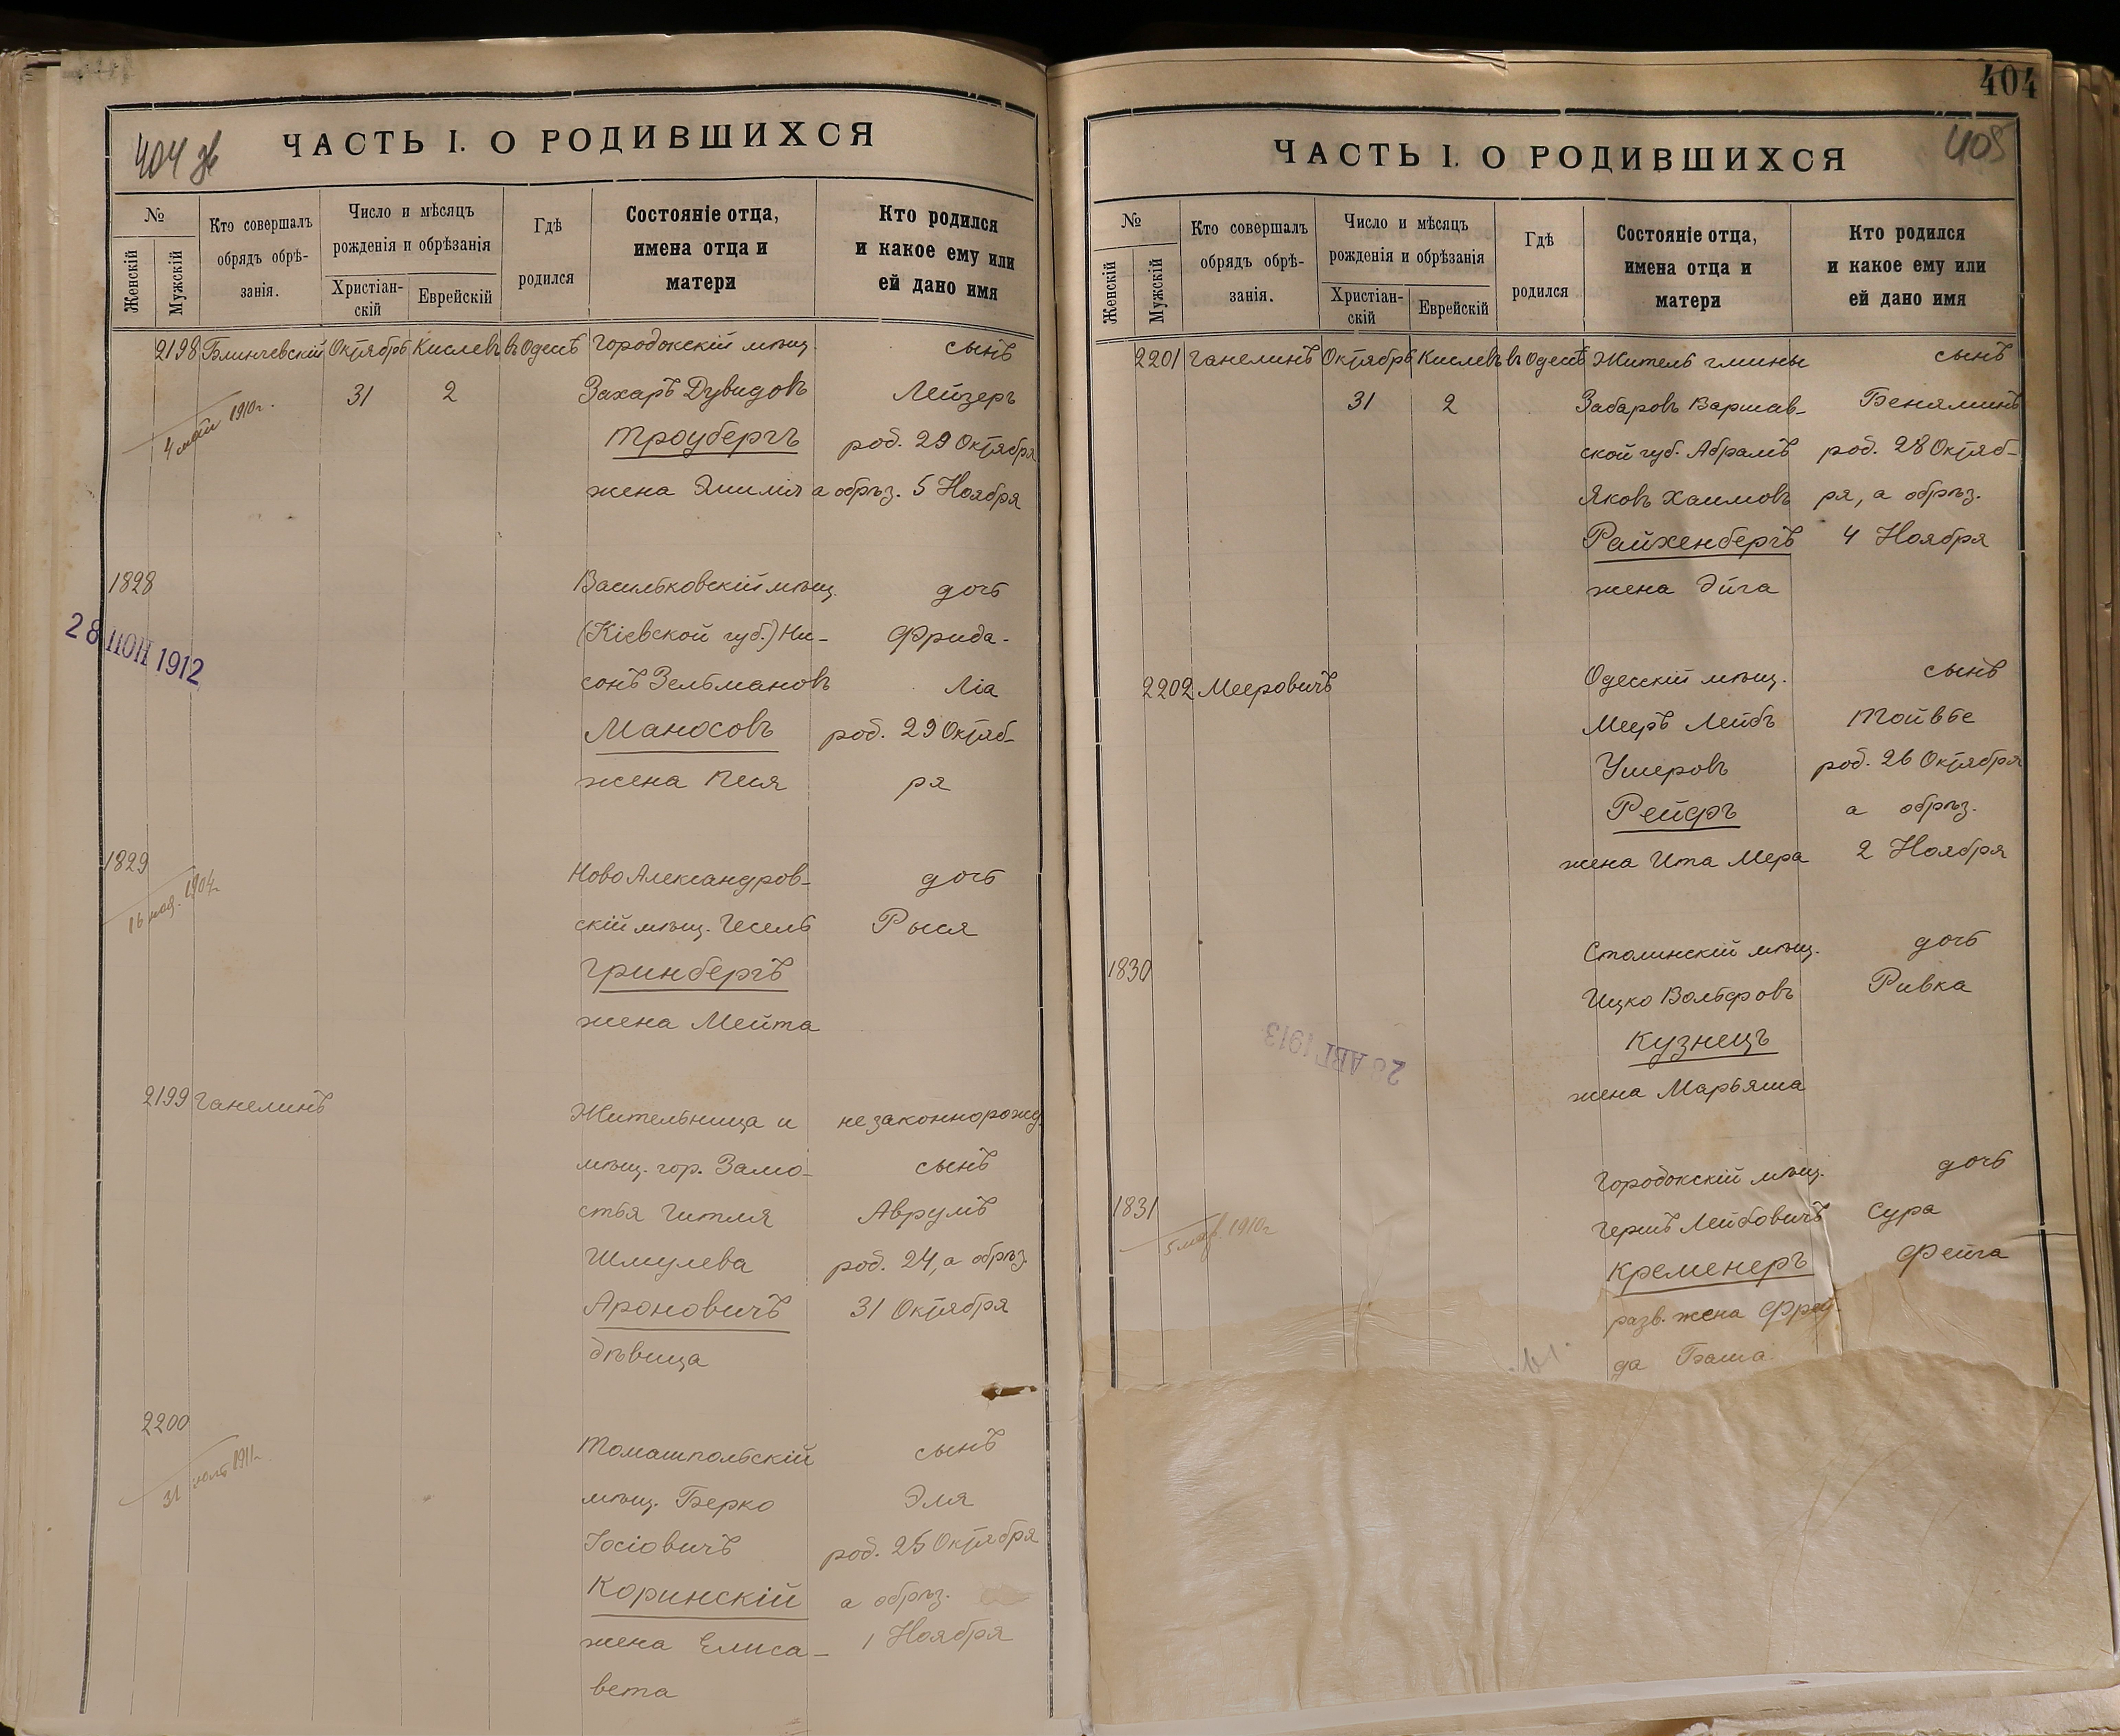 404 зв
ЧАСТЬ I. О РОДИВШИХСЯ
№
Женскій
Мужскій
Кто совершалъ
обрядъ обрѣ-
занія.
Число и мѣсяцъ
рожденія и обрѣзанія
Христіан-
скій
Еврейскій
Гдѣ
родился
Состояніе отца,
имена отца и
матери
Кто родился
и какое ему или
ей дано имя
2198 Блинчевскій Октябрь Кислевъ въ Одессѣ Городокскій мѣщ. сынъ
31 2 Захаръ Дувидовъ Лейзеръ
4 мая 1910г.
Троубергъ род. 29 Октября
жена Эмилія а обрѣз. 5 Ноября
1828 Васильковскій мѣщ. дочь
28 ІЮН 1912
(Кіевской губ.) Ни- Фрида-
сонъ Зельмановъ Ліа
Маносовъ род. 29 Октяб-
жена Песя ря
1829 Ново Александров- дочь
16 1904г.
скій мѣщ. Гесель Рыся
Гринбергъ
жена Мейта
2199 Ганелинъ Жительница и незаконнорожд.
мѣщ. гор. Замо- сынъ
стья Гитля Аврумъ
Шмулева род. 24, а обрѣз.
Ароновичъ 31 Октября
дѣвица
2200 Томашпольскій сынъ
31 1911г.
мѣщ. Берко Эля
Іосіовичъ род. 25 Октября
Коринскій а обрѣз.
жена Елиса- 1 Ноября
вета
404
405
ЧАСТЬ I. О РОДИВШИХСЯ
№
Женскій
Мужскій
Кто совершалъ
обрядъ обрѣ-
занія.
Число и мѣсяцъ
рожденія и обрѣзанія
Христіан-
скій
Еврейскій
Гдѣ
родился
Состояніе отца,
имена отца и
матери
Кто родился
и какое ему или
ей дано имя
2201 Ганелинъ Октябрь Кислевъ въ Одессѣ Житель гмины сынъ
31 2 Забаровъ Варшав- Беняминъ
ской губ. Абрамъ род. 28 Октяб-
Яковъ Хаимовъ ря, а обрѣз.
Райхенбергъ 4 Ноября
жена Эйга
2202 Мееровичъ Одесскій мѣщ. сынъ
Мееръ Лейбъ Тойвье
Ушеровъ род. 26 Октября
Рейфъ а обрѣз.
жена Ита Мера 2 Ноября
1830 Столинскій мѣщ. дочь
Ицко Вольфовъ Ривка
Кузнецъ
АВГ 1913
жена Марьяша
1831 Городокскій мѣщ. дочь
1910г
Гершъ Лейбовичъ Сура
Кременеръ Фейга
разв. жена Фрей-
да Баша